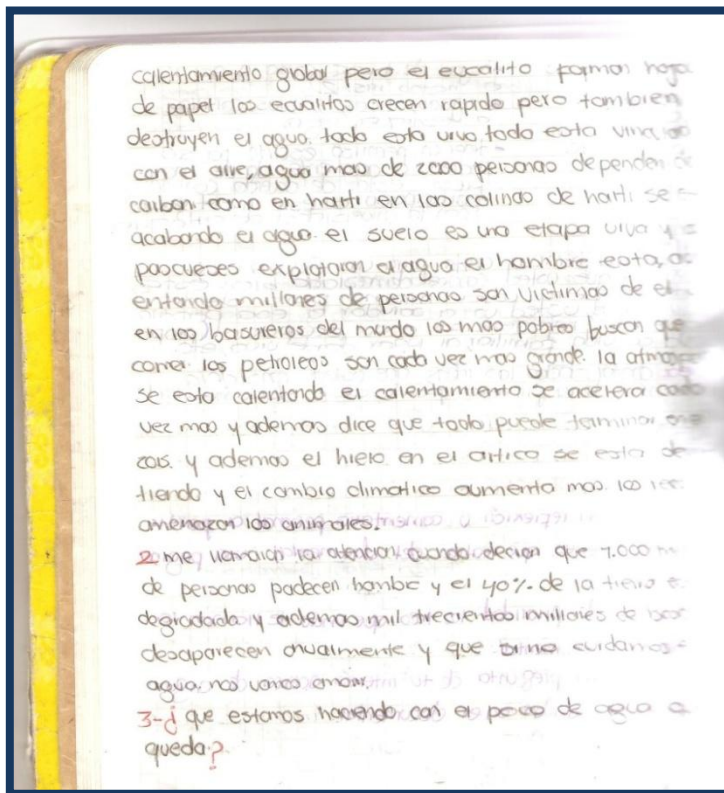 calentamiento global pero el eucalito forman hoja
de papel los ecualitos crecen rapido pero tambien
destruyen el agua. todo esta vivo, todo esta
con el aire, agua mas de 2000 personas dependen de
carbon como en haiti en las colinas de haiti se
acabando el agua. el suelo es una etapa viva y
pascueses explotaron el agua el hambre esta,
entando millones de personas son victimas de el
en los basureros del mundo los mas pobres buscan que
comer los petroleos son cada vez mas grande. la
se esta calentando el calentamiento se acelera cada
vez mas y ademas dice que todo puede terminar
2015. y ademas el hielo en el artico se esta de
tiendo y el cambio climatico aumenta mas. los
amenazan los animales.
2 me llamaron la atencion cuando decian que 7.000
de personas padecen hambe y el 40% de la tierra
degradada y ademas mil trecientos millones de
desaparecen anualmente y que si no cuidamos
agua nos vamos amorir.
3-¿ que estamos haciendo con el poco de agua q
queda?